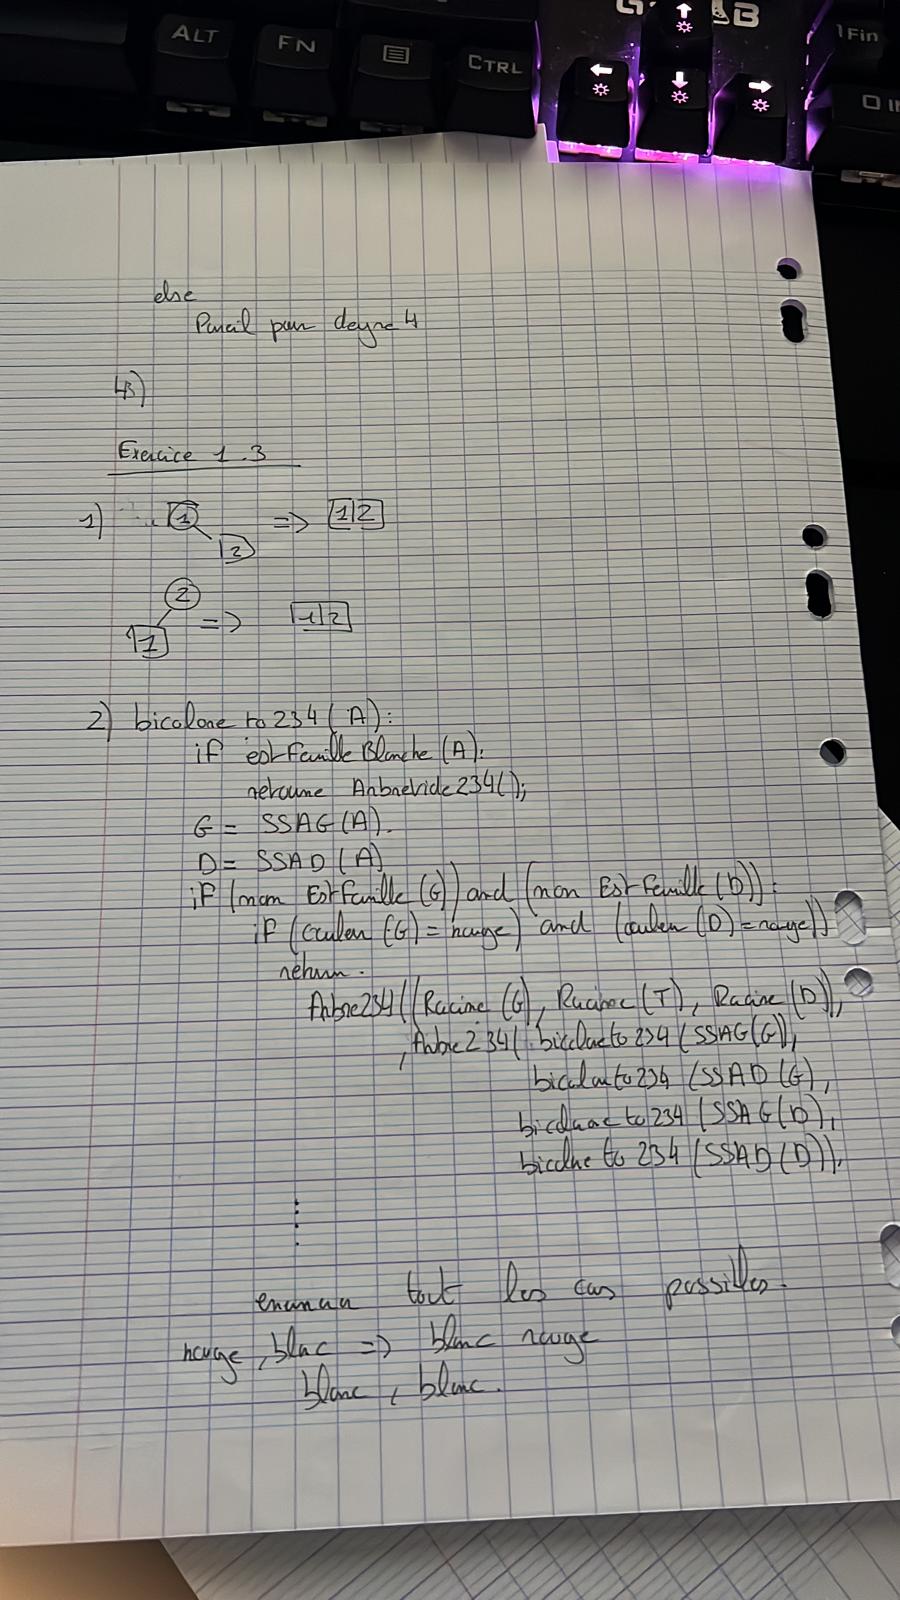 ALT
FN
CTRL
1 Fin
else
Pareil pour degre 4
4)
Exercice 1.3
1) 1 2 => 1|2
2 1 => 1|2
2) bicolore to 234 (A):
if est Feuille Blanche (A):
retourne Arbrevide234();
G = SSAG(A).
D = SSAD(A)
if (non Est Feuille (G)) and (non Est Feuille (D)):
if (couleur (G) = rouge) and (couleur (D) = rouge))
return.
Arbre234((Racine (G), Racine (T), Racine (D)),
, Arbre 234( bicolore to 234 (SSAG(G)),
bicolore to 234 (SSAD (G),
bicolore to 234 (SSAG(D),
bicolore to 234 (SSAD(D)),
tout les cas possibles.
rouge, blanc => blanc rouge
blanc, blanc.